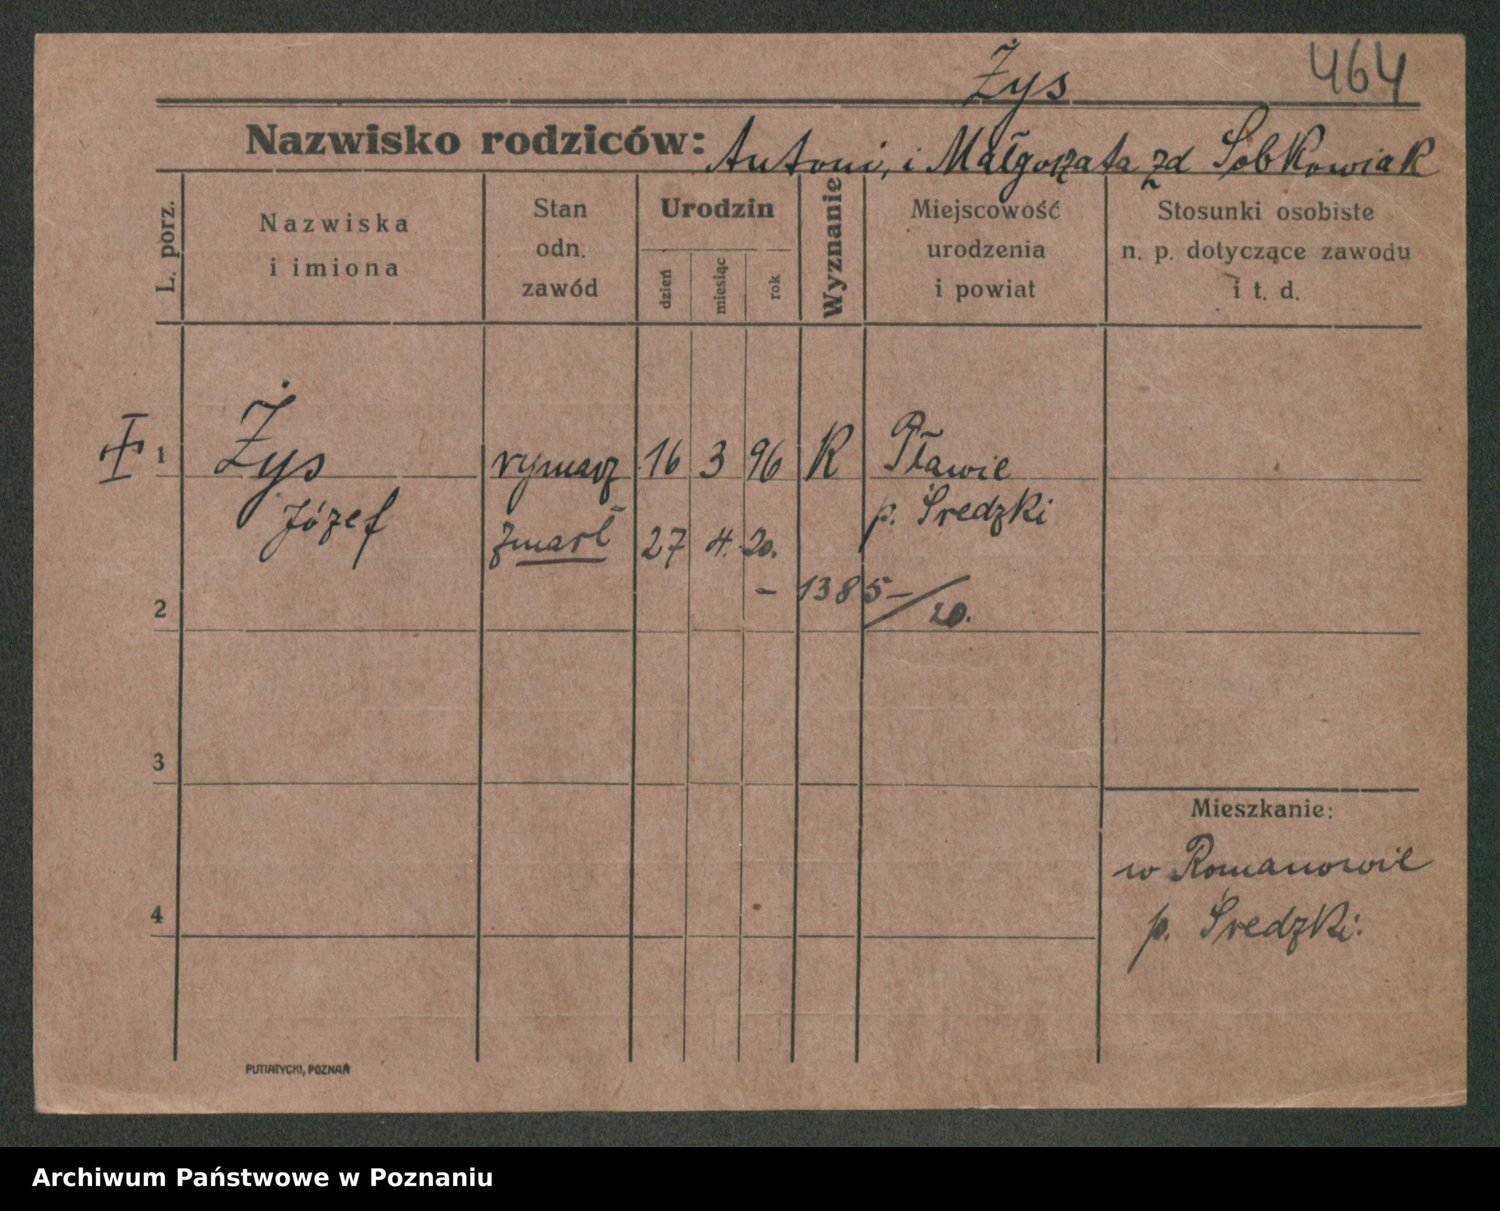 Żys 464
Nazwisko rodziców: Antoni, i Małgorzata zd Sobkowiak
L. porz.
Nazwiska
i imiona
Stan
odn.
zawód
Urodzin
dzień
miesiąc
rok
Wyznanie
Miejscowość
urodzenia
i powiat
Stosunki osobiste
n. p. dotyczące zawodu
i t. d.
1 Żys rymarz 16 3 96 K Pławie
Józef p. Średzki
zmarł 27 4. 20.
2 – 1385–/20.
3
Mieszkanie:
w Romanowie
4 p. Średzki.
PUTIATYCKI, POZNAŃ
Archiwum Państwowe w Poznaniu